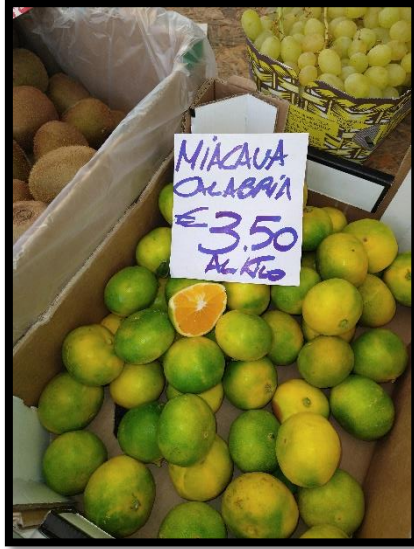 MIACAUA
CALABRIA
€ 3.50
AL KILO